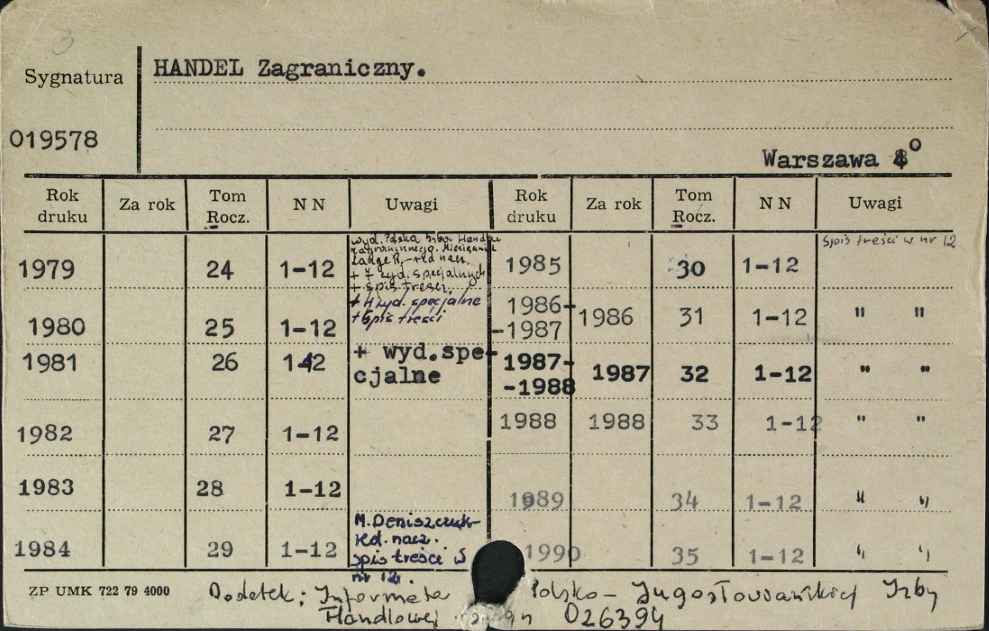 3
Sygnatura HANDEL Zagraniczny.
019578
Warszawa 4°
Rok druku Za rok Tom Rocz. NN Uwagi Rok druku Za rok Tom Rocz. NN Uwagi
1979 24 1-12 wyd. Polska Izba Handlu Zagranicznego. Miesięcznik
- red. nacz.
+ 7 wyd. specjalnych
+ spis treści
1985 30 1-12 Spis treści w nr 12
1980 25 1-12 + 4 wyd. specjalne
+ spis treści
1986-
-1987 1986 31 1-12 " "
1981 26 1-12 + wyd.spe-
cjalne
1987-
-1988 1987 32 1-12 " "
1982 27 1-12
1988 1988 33 1-12 " "
1983 28 1-12
1989 34 1-12 " "
1984 29 1-12 M. Deniszczuk-
red. nacz.
spis treści w
nr 12.
1990 35 1-12 " "
ZP UMK 722 79 4000
Dodatek: Polsko-Jugosłowiańskiej Izby
Handlowej 026394